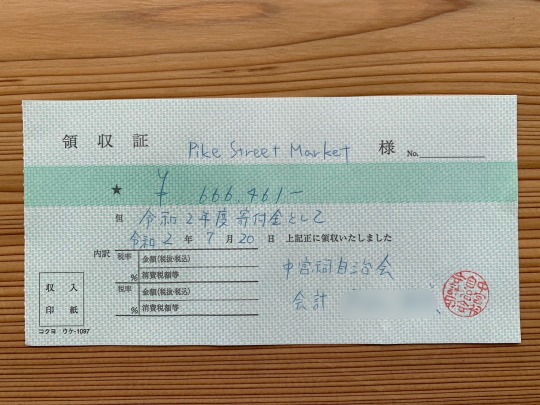 領収証 Pike Street Market 様 No.
★ ¥ 666,461-
但 令和2年度寄付金として
令和2年7月20日 上記正に領収いたしました
内訳 税率 金額(税抜・税込)
% 消費税額等
税率 金額(税抜・税込)
% 消費税額等
中宮祠自治会
会計
収入
印紙
コクヨ ウケ-1097